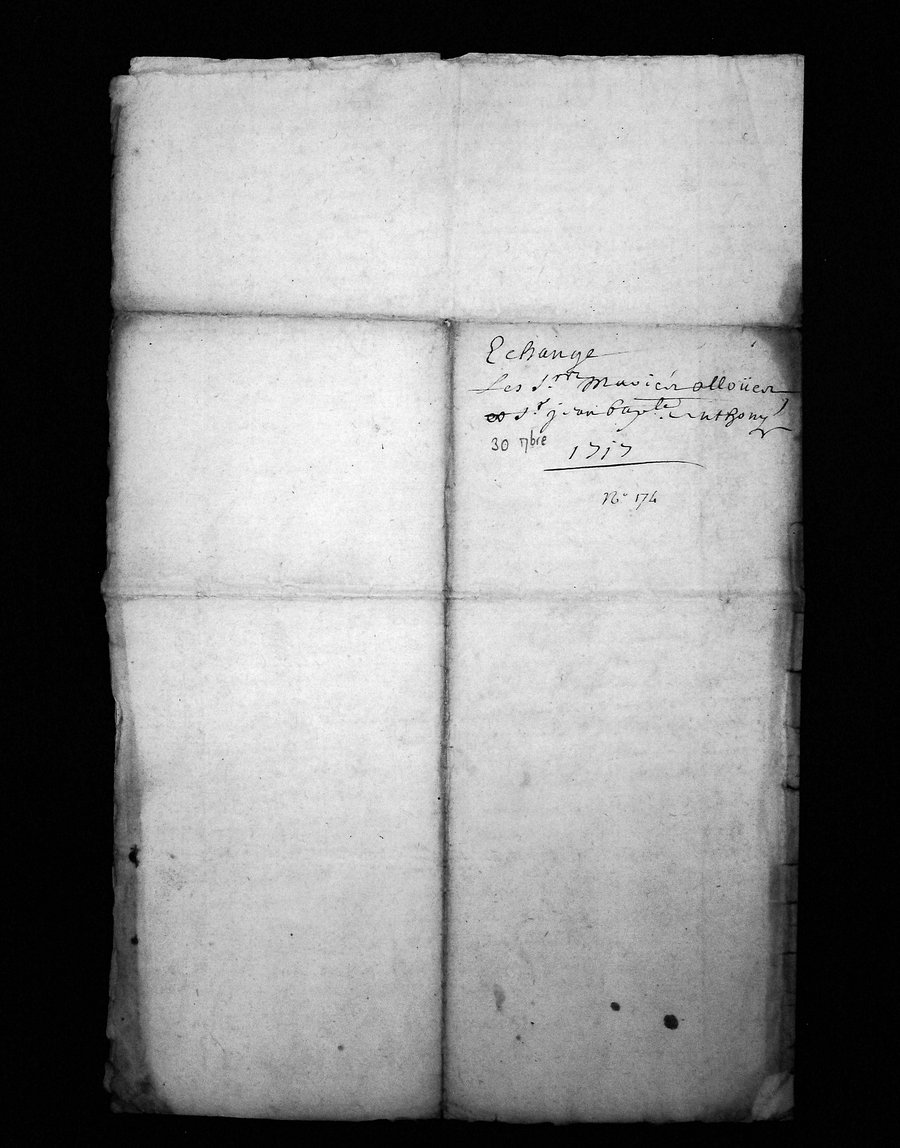 Echange
Les S.rs alloüer
et S.r jean bap.te anthony
30 7bre
1717
N.o 174